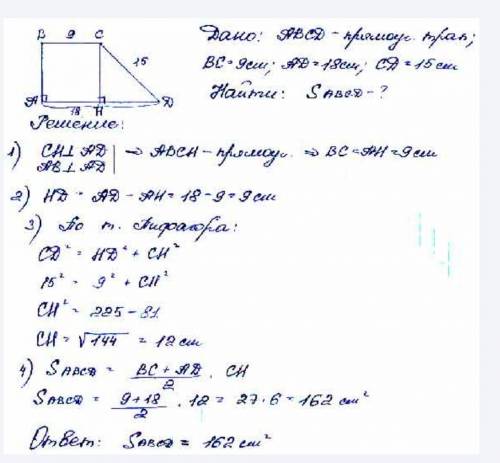 B 9 C
Дано: ABCD – прямоуг. трап;
15
BC = 9см; AD = 18см; CD = 15см
A H D
18
Найти: S ABCD – ?
Решение:
1) CH ⊥ AD | ⇒ ABCH – прямоуг. ⇒ BC = AH = 9см
AB ⊥ AD |
2) HD = AD – AH = 18 – 9 = 9см
3) По т. Пифагора:
CD² = HD² + CH²
15² = 9² + CH²
CH² = 225 – 81
CH = √144 = 12 см
4) S ABCD = (BC + AD)/2 · CH
S ABCD = (9 + 18)/2 · 12 = 27 · 6 = 162 см²
Ответ: S ABCD = 162 см²